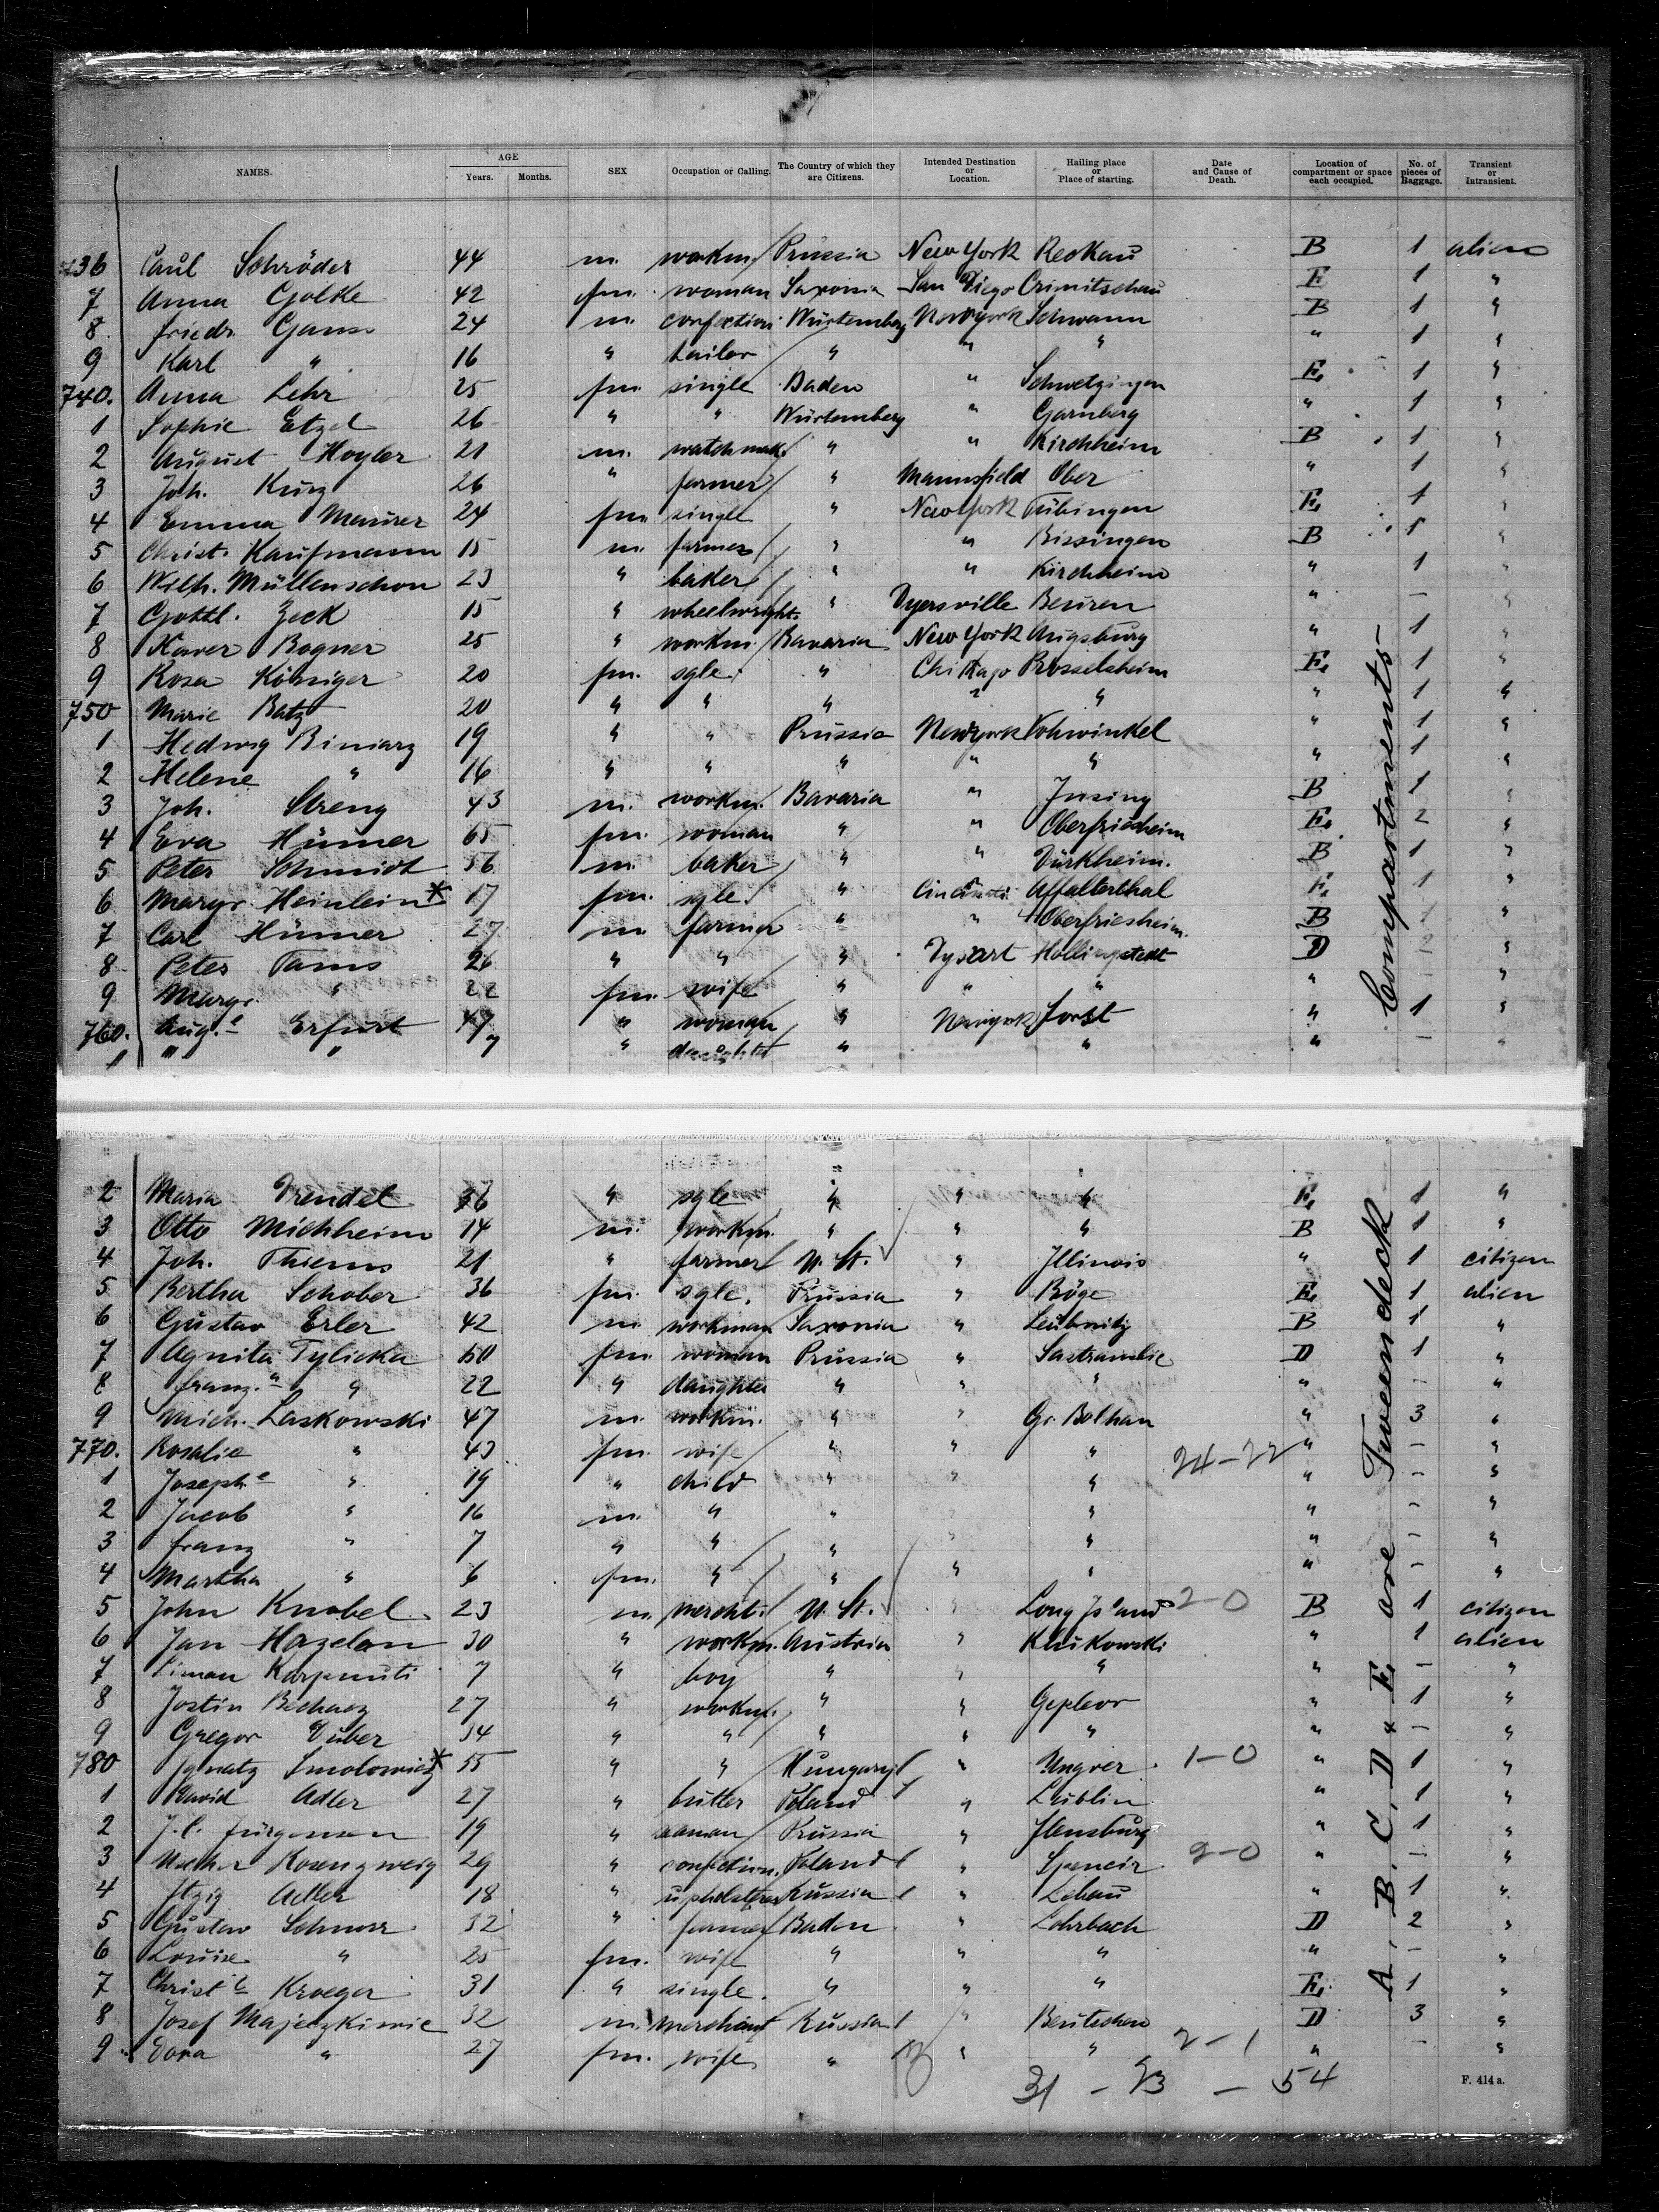 NAMES. AGE Years. Months. SEX Occupation or Calling. The Country of which they are Citizens. Intended Destination or Location. Hailing place or Place of starting. Date and Cause of Death. Location of compartment or space each occupied. No. of pieces of Baggage. Transient or Intransient.
736 Paul Schröder 44 m. workm. Prussia New York Reckau B 1 alien
7 Anna Golke 42 fm. woman Saxonia San Diego Crimitschau E 1 "
8 Friedr. Gann 24 m. confection. Würtemberg New York Schwann B 1 "
9 Karl " 16 " tailor " " " " 1 "
740. Anna Lehr 25 fm. single Baden " Schwetzingen E, 1 "
1 Sophie Etzel 26 " " Würtemberg " Garnberg " 1 "
2 August Hoyler 21 m. watchmak. " " Kirchheim B 1 "
3 Joh. Kurz 26 " farmer " Mannsfield Ober " 1 "
4 Emma Maurer 24 fm. single " New York Tübingen E, 1 "
5 Christ. Kaufmann 15 m. farmer " " Bissingen B 1 "
6 Wilh. Müllenschon 23 " baker " " Kirchheim " 1 "
7 Gottl. Zeck 15 " wheelwright. " Dyersville Beuren " — "
8 Xaver Bogner 25 " workm. Bavaria New York Augsburg " 1 "
9 Rosa Königer 20 fm. sgle. " Chikago Rosselsheim E, 1 "
750 Marie Batz 20 " " " " " " 1 "
1 Hedwig Biniarz 19 " " Prussia New York Vohwinkel " 1 "
2 Helene " 16 " " " " " " 1 "
3 Joh. Streng 43 m. workm. Bavaria " Jnsing B 1 "
4 Eva Hümer 65 fm. woman " " Oberfriesheim E, 2 "
5 Peter Schmidt 56 m. baker " " Dürkheim. B 1 "
6 Margr. Heinlein* 17 fm. sgle. " Cincinati Affalterthal E, 1 "
7 Carl Hümer 27 m farmer " " Oberfriesheim. B 1 "
8 Peter Tams 26 " " " Dysart Hollingstedt D 2 "
9 Margr. " 22 fm. wife " " " " - "
760. Aug.e Erfurt 47 " woman " New York Forst " 1 "
1 " " 7 " daughter " " " — "
2 Maria Drendel 36 " sgle " " " E, 1 "
3 Otto Michheim 14 m. workm. " " " B 1 "
4 Joh. Thiems 21 " farmer U. St. " Jllinois " 1 citizen
5 Bertha Schober 36 fm. sgle. Prussia " Böge E, 1 alien
6 Gustav Erler 42 m workman Saxonia " Leubnitz B 1 "
7 Agnita Tylicka 50 fm. woman Prussia " Sastrambie D 1 "
8 Franz.a " 22 " daughter " " " " — "
9 Mich. Laskowski 47 m. workm. " " Gr. Bolhan " 3 "
770. Rosalie " 43 fm. wife " " " 24-22 " — "
1 Joseph.e " 19 " child " " " " - "
2 Jacob " 16 m. " " " " - "
3 Franz " 7 " " " " " " - "
4 Martha " 6 fm. " " " " " - "
5 John Knobel 23 m mercht. U. St. " Long Jsland 2-0 B 1 citizen
6 Jan Hazelan 30 " workm. Austria " Klukowski " 1 alien
7 Siman Karpnuti 7 " boy " " " " — "
8 Jostin Bechacz 27 " workm. " " Geplevr " 1 "
9 Gregor Duber 34 " " " " " " — "
780 Jgnatz Smolowicz* 55 " " Hungary " Ungver 1-0 " 1 "
1 David Adler 27 " butler Poland " Lublin " 1 "
2 J.C. Jürgensen 19 " seaman Prussia " Flensburg " 1 "
3 Rosenzweig 29 " confection. Poland " 2-0 " — "
4 Itzig Adler 18 " upholsterer Russia " Lebau " 1 "
5 Gustav Schnorr 32 " farmer Baden " Lohrbach D 2 "
6 Louise " 25 fm. wife " " " " - "
7 Christ.le Kroeger 31 " single. " " " E, 1 "
8 Josef Majeczkiwic 32 m. merchant Russia " Beutschen D 3 "
9 Dora " 27 fm. wife " " " 2-1 " — "
31 - 23 - 54
A, B, C, D & E, are Tweendeck Compartments—
F. 414 a.